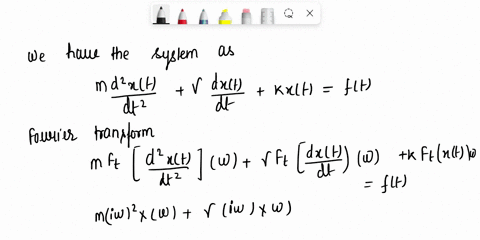 We have the system as
m d²x(t)/dt² + √ dx(t)/dt + Kx(t) = f(t)
Fourier transform
m Ft [d²x(t)/dt²] (ω) + √ Ft [dx(t)/dt) (ω) + K Ft (x(t))ω
= f(t)
m(iω)² x(ω) + √ (iω) x ω)